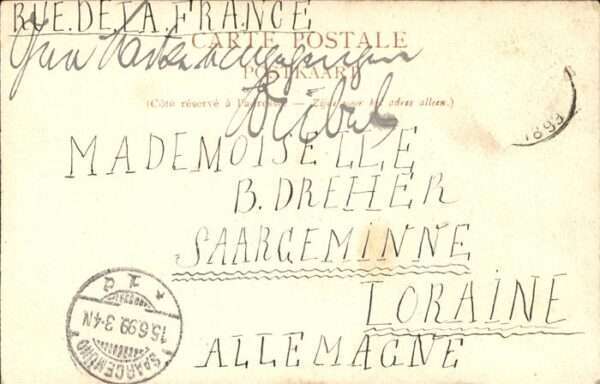 RUE.DE LA.FRANCE
CARTE POSTALE
POSTKAART
(Côté réservé à l'adresse. — Zijde voor het adres alleen.)
MADEMOISELLE
B. DREHER
SAARGEMINNE
LORAINE
ALLEMAGNE
1899
SAARGEMÜND
15.6.99. 3-4N
* 1 d